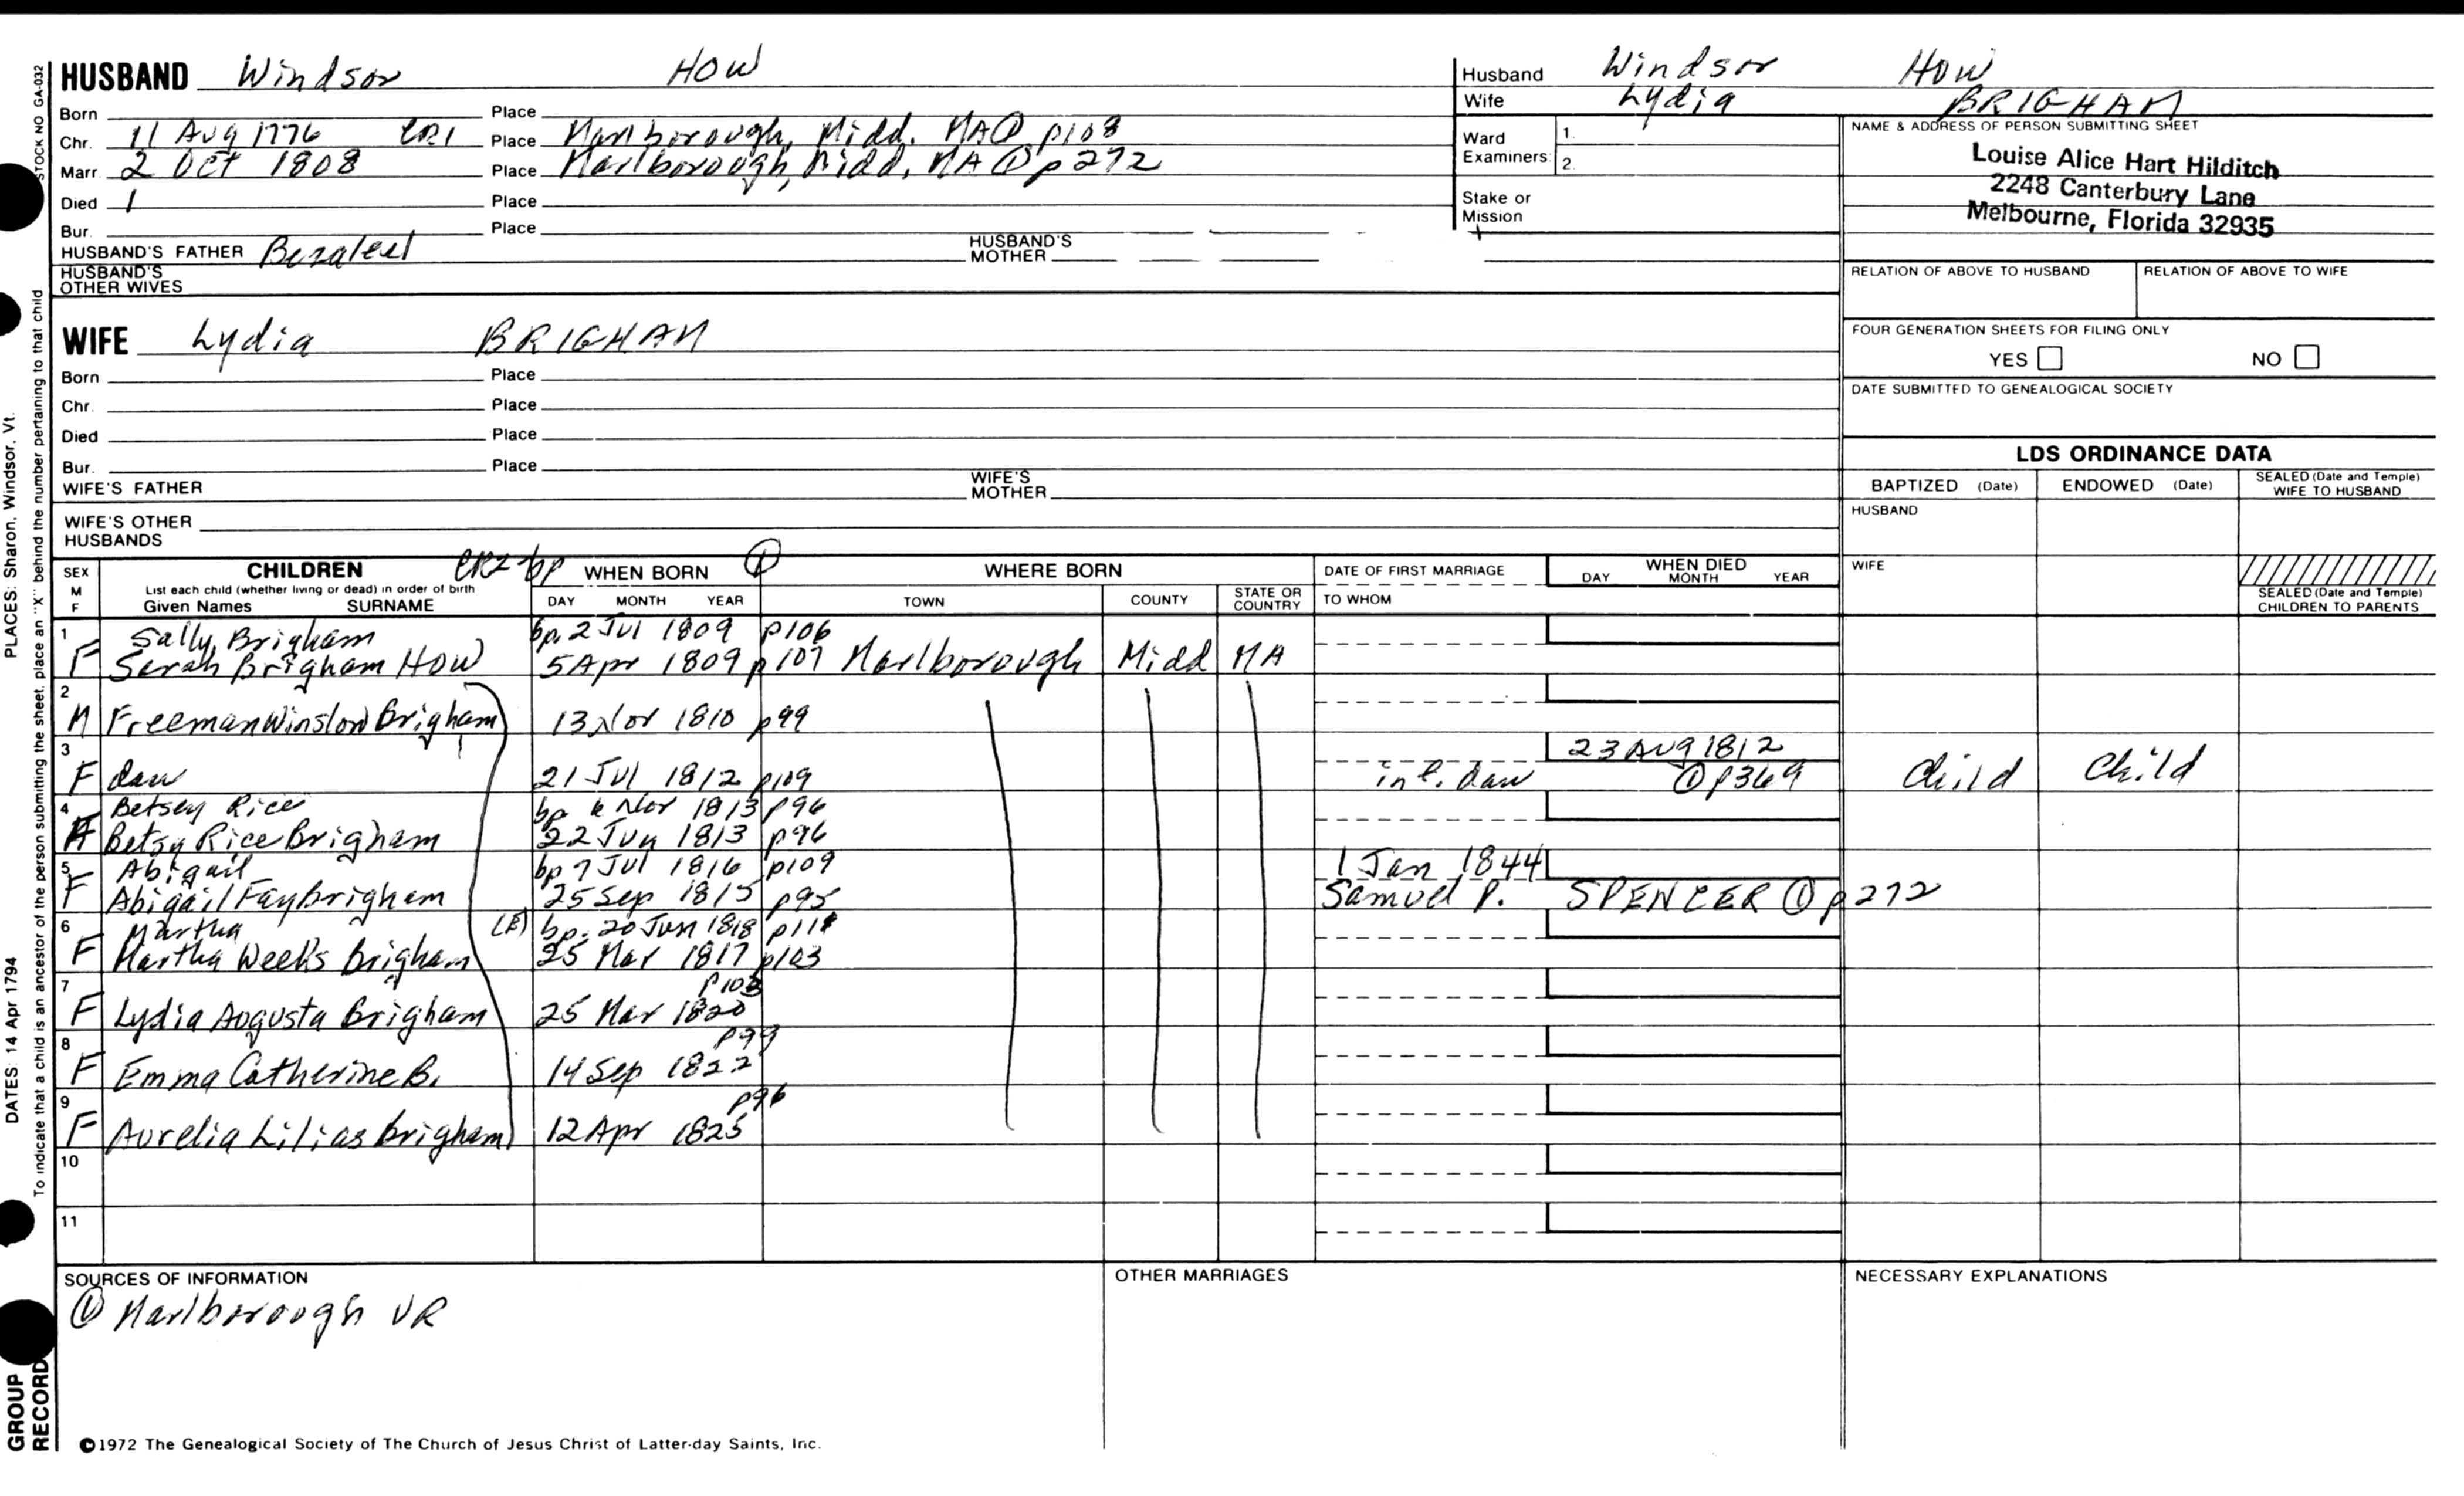 HUSBAND Windsor HOW
Born Place
Chr. 11 Aug 1776 CR1 Place Marlborough, Midd. MA ① p108
Marr. 2 Oct 1808 Place Marlborough, Midd, MA ① p272
Died Place
Bur. Place
HUSBAND'S FATHER Bezaleel HUSBAND'S MOTHER
HUSBAND'S OTHER WIVES
WIFE Lydia BRIGHAM
Born Place
Chr. Place
Died Place
Bur. Place
WIFE'S FATHER WIFE'S MOTHER
WIFE'S OTHER HUSBANDS
Husband Windsor HOW
Wife Lydia BRIGHAM
Ward Examiners: 1. 2.
Stake or Mission
NAME & ADDRESS OF PERSON SUBMITTING SHEET
Louise Alice Hart Hilditch
2248 Canterbury Lane
Melbourne, Florida 32935
RELATION OF ABOVE TO HUSBAND RELATION OF ABOVE TO WIFE
FOUR GENERATION SHEETS FOR FILING ONLY
YES NO
DATE SUBMITTED TO GENEALOGICAL SOCIETY
LDS ORDINANCE DATA
BAPTIZED (Date) ENDOWED (Date) SEALED (Date and Temple) WIFE TO HUSBAND
HUSBAND
WIFE
SEALED (Date and Temple) CHILDREN TO PARENTS
SEX M F
CHILDREN CR2 bp WHEN BORN ① WHERE BORN DATE OF FIRST MARRIAGE WHEN DIED
List each child (whether living or dead) in order of birth
Given Names SURNAME DAY MONTH YEAR TOWN COUNTY STATE OR COUNTRY TO WHOM DAY MONTH YEAR
1 Sally Brigham bp. 2 Jul 1809 p106
F Sarah Brigham HOW 5 Apr 1809 p107 Marlborough Midd MA
2
M Freeman Winslow Brigham 13 Nov 1810 p99
3 23 AUG 1812
F dau 21 Jul 1812 p109 inf. dau ① p369 Child Child
4 Betsey Rice bp Nov 1813 p96
F Betsy Rice Brigham 22 Jun 1813 p96
5 Abigail bp 7 Jul 1816 p109 1 Jan 1844
F Abigail Fay Brigham 25 Sep 1815 p95 Samuel P. SPENCER ① p272
6 Martha (E) bp. 20 Jun 1818
F Martha Weeks Brigham 25 Mar 1817 p103
7 p103
F Lydia Augusta Brigham 25 Mar 1820
8 p99
F Emma Catherine B. 14 Sep 1822
9 p96
F Aurelia Lilias Brigham 12 Apr 1825
10
11
SOURCES OF INFORMATION
① Marlborough VR
OTHER MARRIAGES
NECESSARY EXPLANATIONS
©1972 The Genealogical Society of The Church of Jesus Christ of Latter-day Saints, Inc.
STOCK NO GA-032
To indicate that a child is an ancestor of the person submitting the sheet, place an "X" behind the number pertaining to that child
DATES: 14 Apr 1794 PLACES: Sharon, Windsor, Vt.
GROUP
RECORD